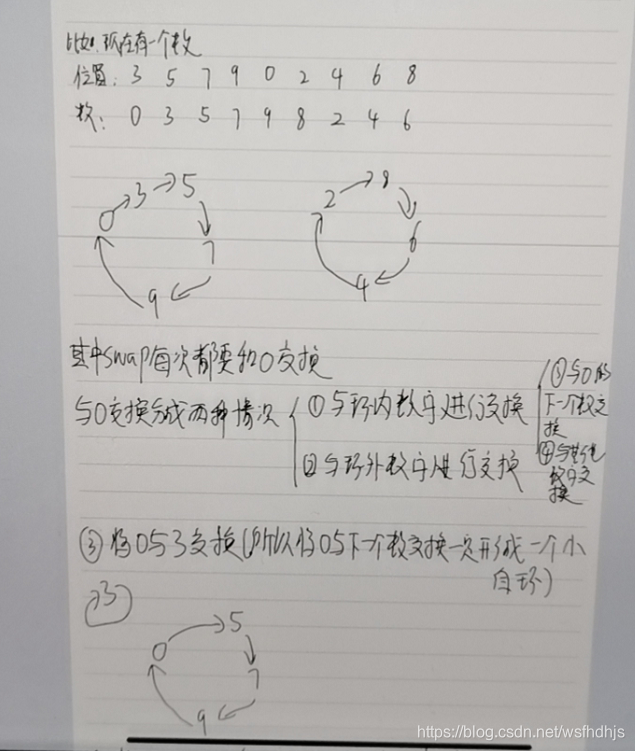 比如.现在有一个数
位置: 3 5 7 9 0 2 4 6 8
数: 0 3 5 7 9 8 2 4 6
0 3 5 7 9
2 8 6 4
其中swap每次都要和0交换
与0交换分成两种情况
①与环内数字进行交换
②与环外数字进行交换
③与0的
下一个数交
换
④与其他
数字交
换
③将0与3交换(所以将0与下一个数交换一次形成一个小
自环)
3
0 5 7 9
https://blog.csdn.net/wsfhdhjs